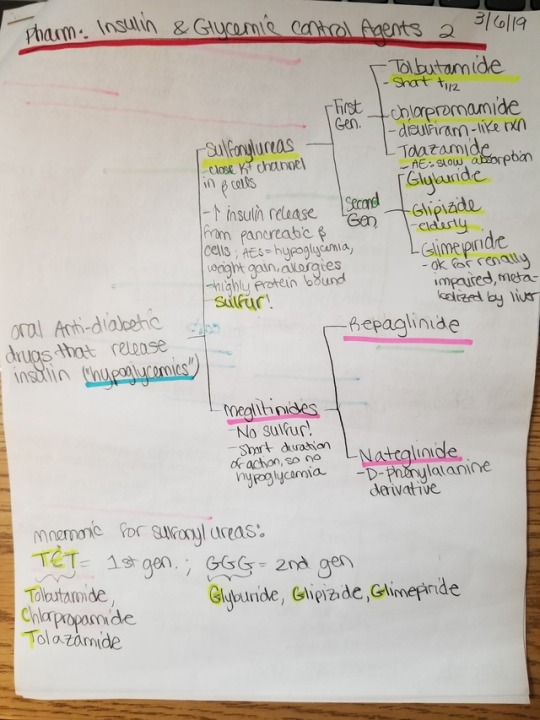 Pharm: Insulin & Glycemic Control Agents 2
3/6/19
Oral Anti-diabetic
drugs that release
insulin ("hypoglycemics")
Sulfonylureas
-close K+ channel
in β cells
-↑ insulin release
from pancreatic β
cells; AEs=hypoglycemia,
weight gain, allergies
-highly protein bound
Sulfur!
First
Gen.
Tolbutamide
-Short t1/2
Chlorpromamide
-disulfiram-like rxn
Tolazamide
-AE: slow absorption
Second
Gen
Glyburide
Glipizide
-elderly
Glimepiride
-OK for renally
impaired, meta-
bolized by liver
Meglitinides
-No sulfur!
-Short duration
of action, so no
hypoglycemia
Repaglinide
Nateglinide
-D-Phenylalanine
derivative
mnemonic for sulfonylureas:
TCT = 1st gen. ; GGG = 2nd gen
Tolbutamide,
Chlorpropamide
Tolazamide
Glyburide, Glipizide, Glimepiride